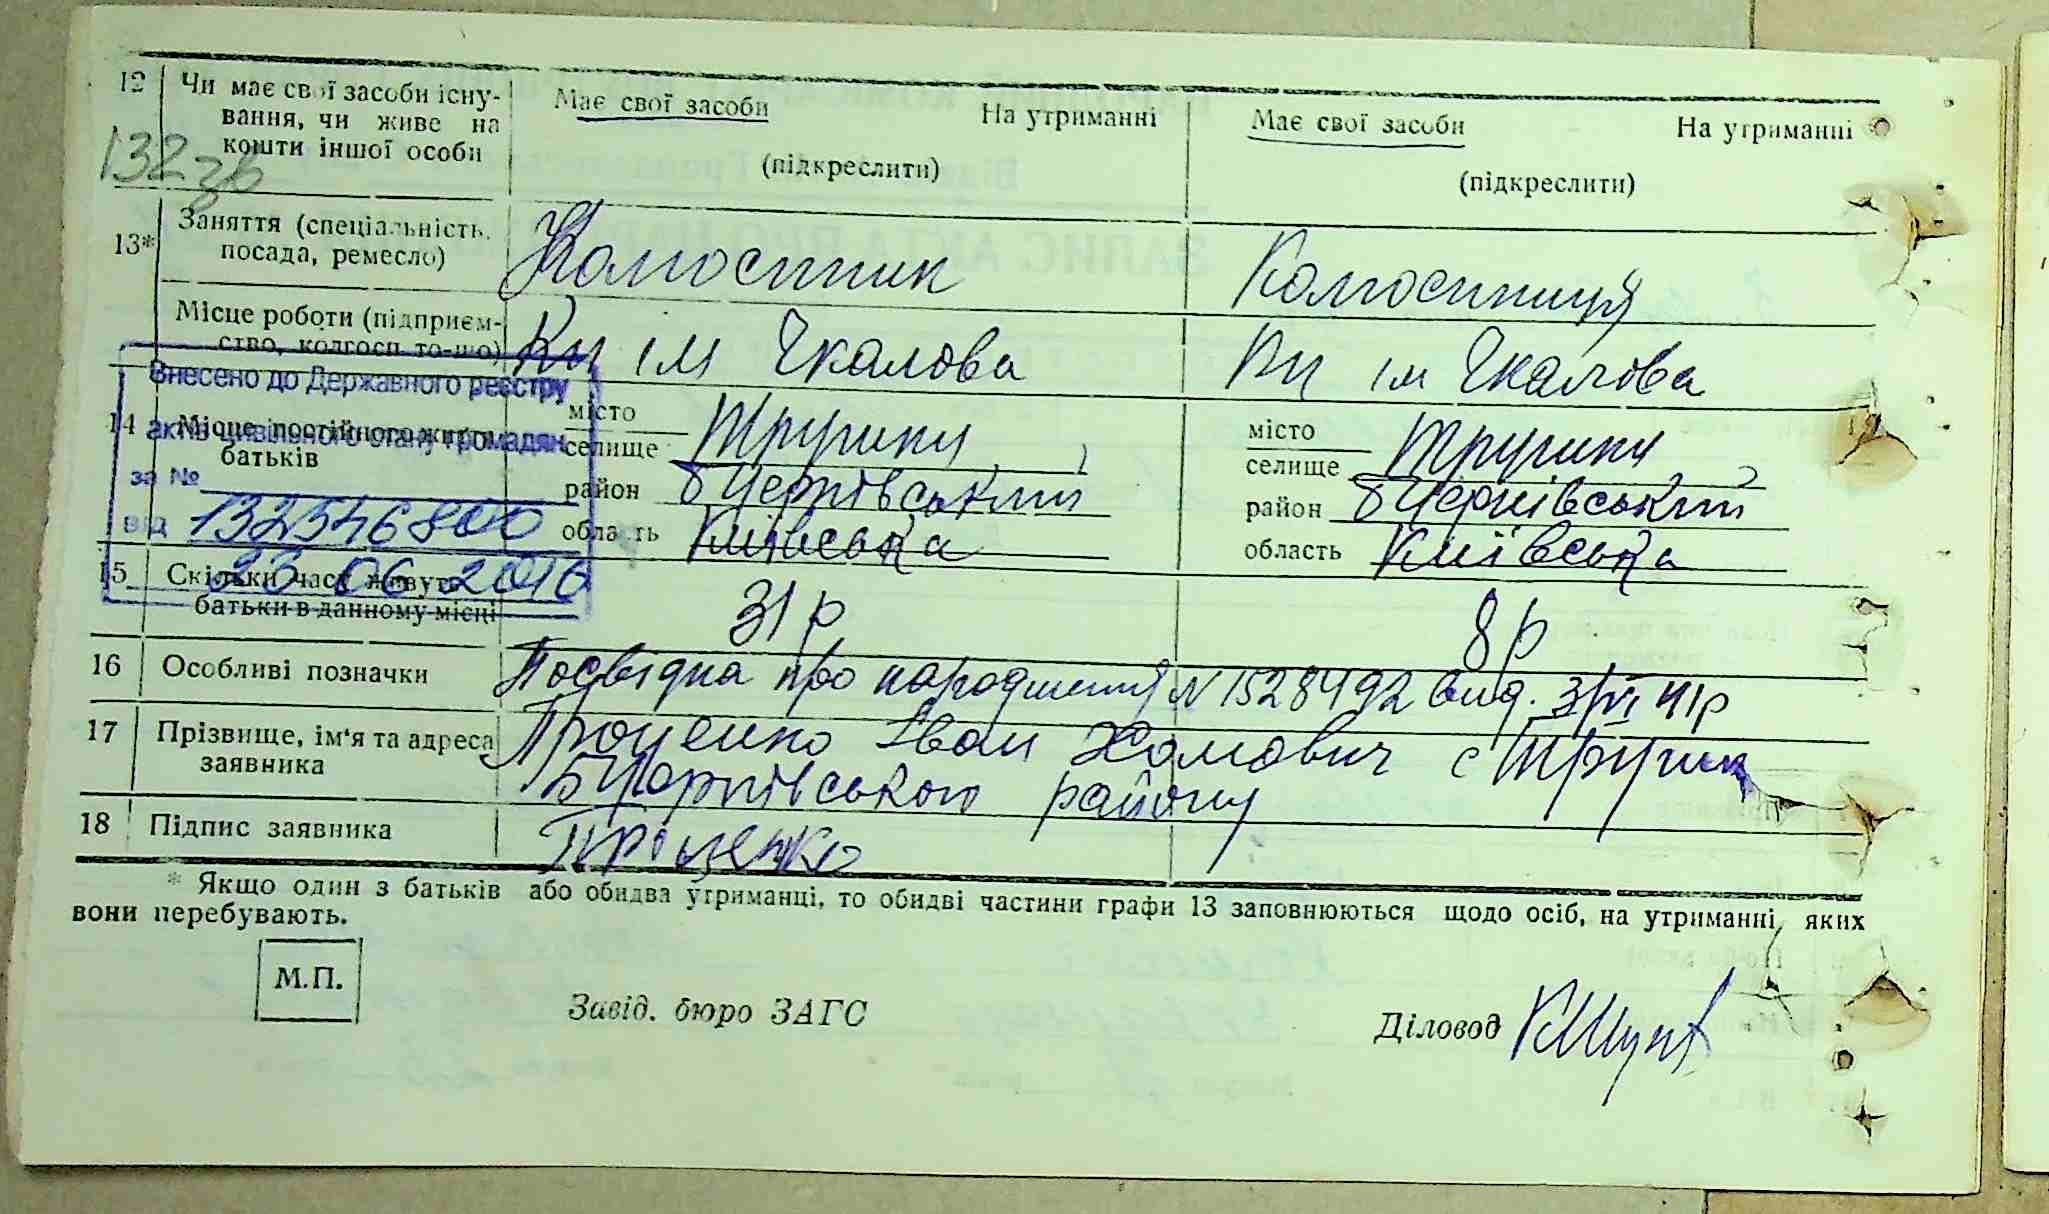 12 Чи має свої засоби існу- Має свої засоби На утриманні Має свої засоби На утриманні
вання, чи живе на
кошти іншої особи (підкреслити) (підкреслити)
132зв
13* Заняття (спеціальність, Колгоспник Колгоспниця
посада, ремесло)
Місце роботи (підприєм- ім Чкалова ім Чкалова
ство, колгосп то-що)
Внесено до Державного реєстру
актів цивільного стану громадян
за №
132546800
від
06 2016
14 Місце постійного життя місто місто
батьків селище селище
район район
область Київська область Київська
15 Скільки часу живуть 31 р 8 р
батьки в данному місці
16 Особливі позначки Посвідка про народження N 1528492 вид. 3/VI 41р
17 Прізвище, ім'я та адреса Проценко Іван Хомович с
заявника району
18 Підпис заявника Проценко
* Якщо один з батьків або обидва утриманці, то обидві частини графи 13 заповнюються щодо осіб, на утриманні яких
вони перебувають.
М.П.
Завід. бюро ЗАГС Діловод